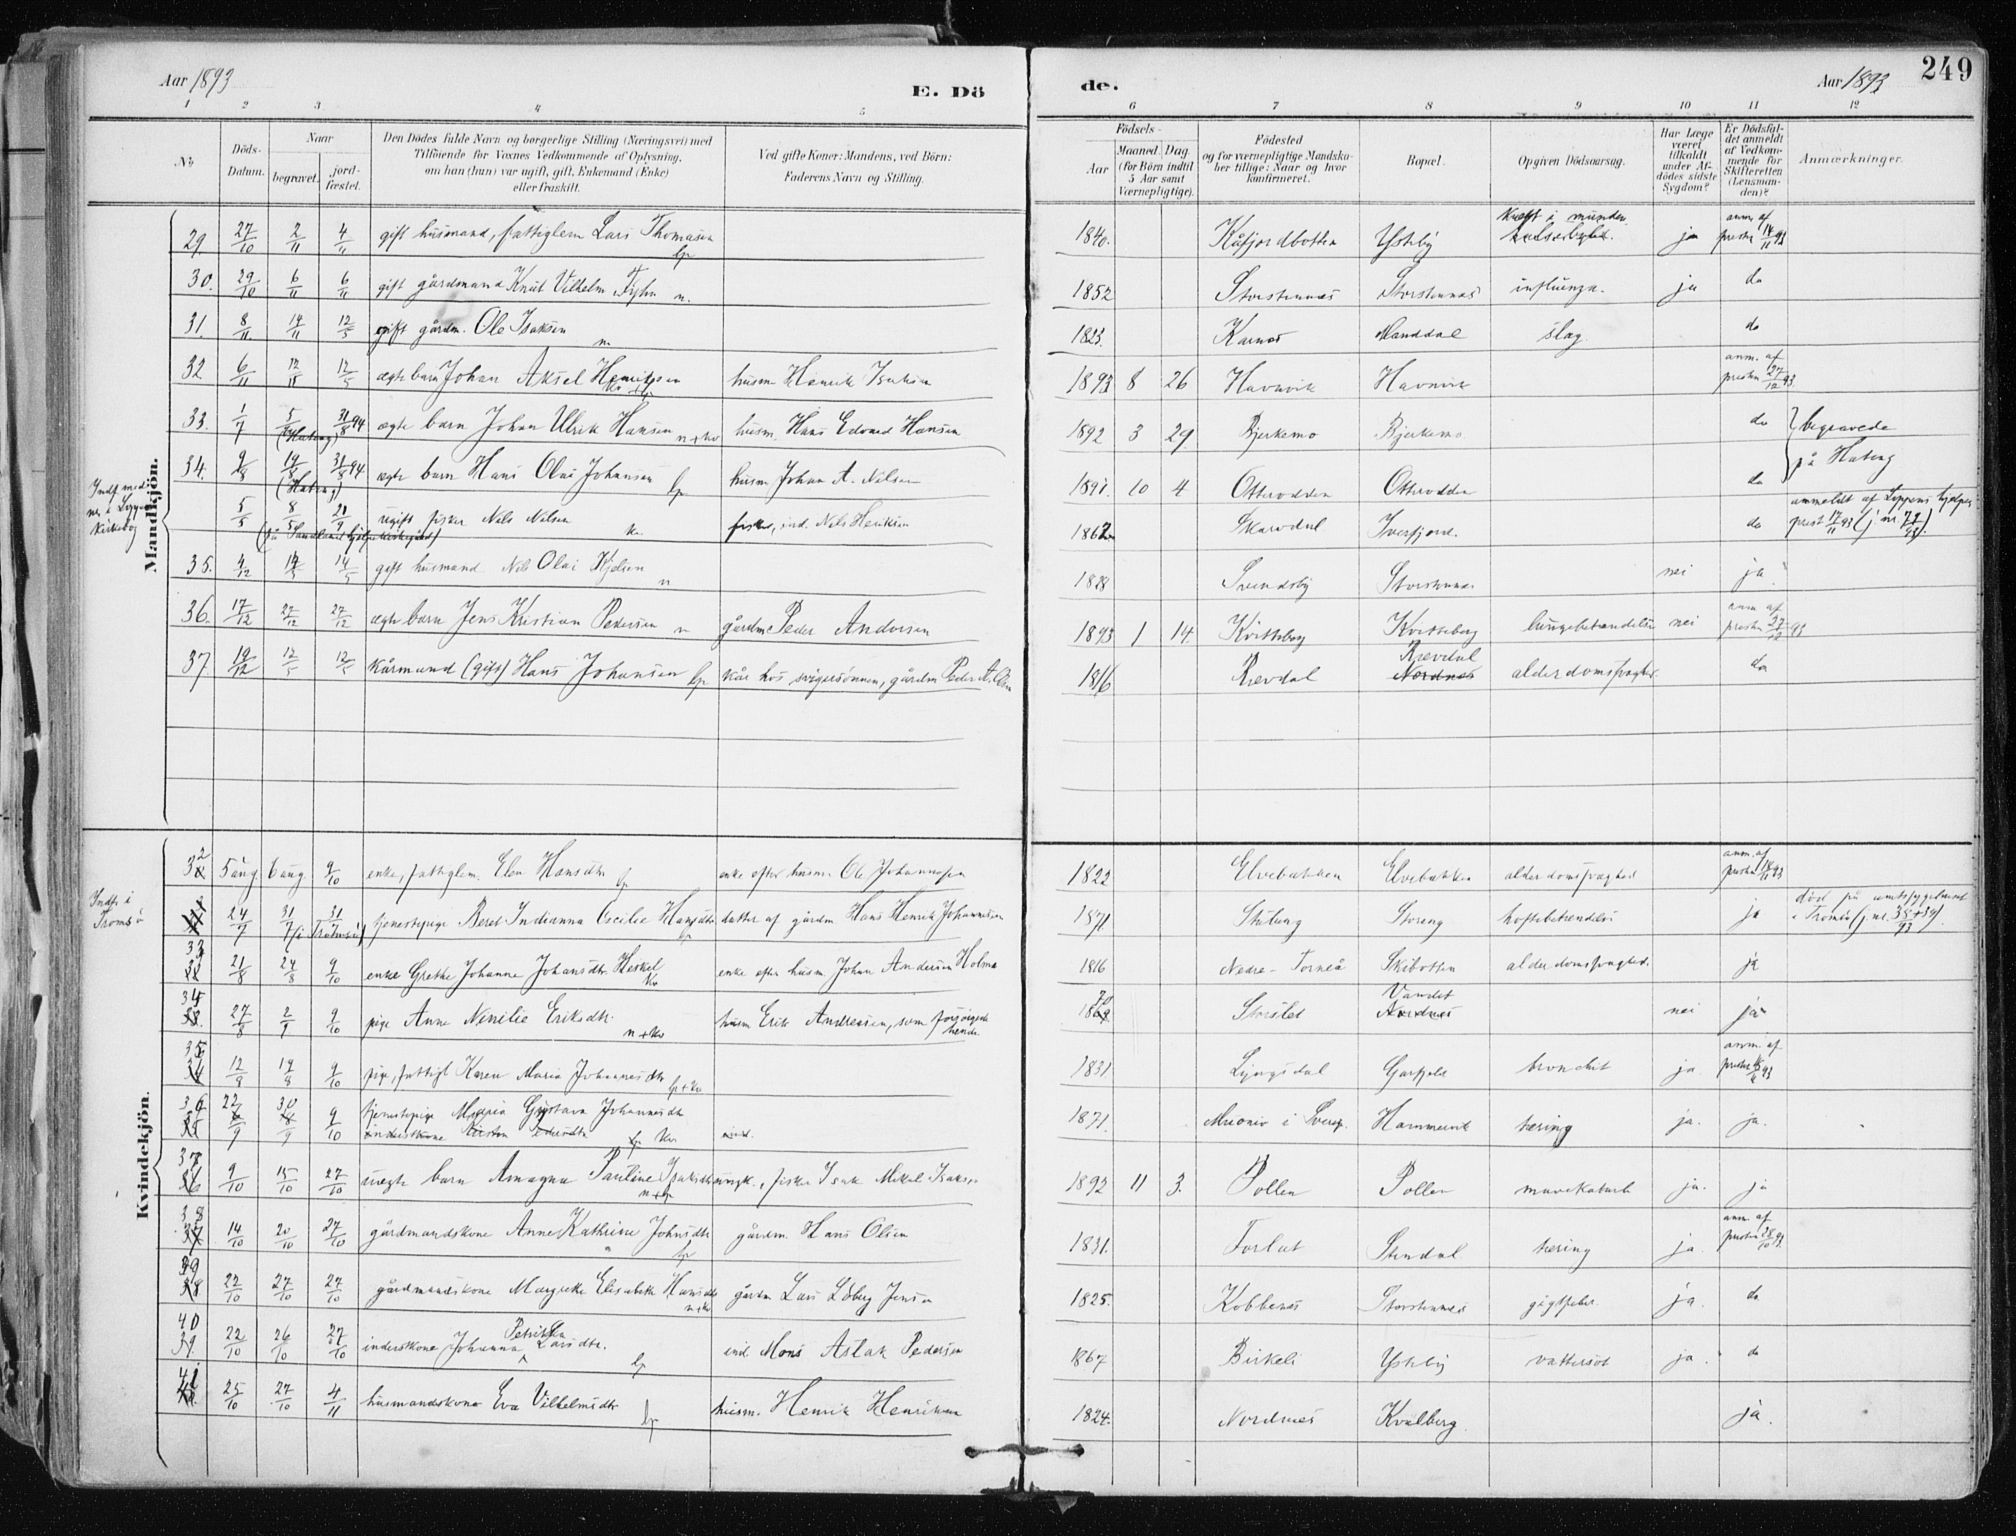 Aar 1893
E. Dö
de.
Aar 1893
249
1 2 3 4 5 6 7 8 9 10 11 12
No
Döds-Datum.
Naar
begravet.
jord-fæstet.
Den Dödes fulde Navn og borgerlige Stilling (Næringsvei) med
Tilföiende for Voxnes Vedkommende af Oplysning,
om han (hun) var ugift, gift, Enkemand (Enke)
eller fraskilt.
Ved gifte Koner: Mandens, ved Börn:
Faderens Navn og Stilling.
Födsels-
Aar
Maaned. Dag.
(for Börn indtil
5 Aar samt
Værnepligtige).
Födested
og for værnepligtige Mandska-
ber tillige: Naar og hvor
konfirmeret.
Bopæl.
Opgiven Dödsaarsag.
Har Læge
været
tilkaldt
under Af-
dödes sidste
Sygdom?
Er Dödsfal-
det anmeldt
af Vedkom-
mende for
Skifteretten
(Lensman-
den)?
Anmærkninger.
Mandkjön.
29. 27/10 2/11 4/11 gift husmand, fattiglem Lars Thomasen lp 1840. Kåfjordbotten Ysteby kræft i munden ja anm. af presten 14/11 93
30. 29/10 6/11 6/11 gift gårdmand Knut Vilhelm n. 1852 Storstennæs Storstennæs influenza. ja do
31. 8/11 12/5 gift gårdm. Ole Isaksen n. 1823. Karnæs Manddal slag do
32 6/11 12/5 ægte barn Johan Aksel Henriksen husm. Henrik Isaksen 1893 8 26 Havnvik Havnvik anm. af presten 27/12 93.
33. 1/7 5/ (Hateng) 31/8 94 ægte barn Johan Ulrik Hansen n+kv husm. Hans Edvard Hansen 1892 3 29 Bjerkemo Bjerkemo do begravede
34. 9/8 19/8 (Hateng) 31/8 94 ægte barn Hans Olai Johansen lp husm Johan A. Nilsen 1891. 10 4 Otterodden Otterodden do på Hateng
5/5 8/5 21/9 ugift fisker Nils Nilsen kv. fisker, ind. Nils Henriksen 1862 Skarvdal Iversfjord. do anmeldt af Loppens hjelpeprest 17/11 93 (j. nr. 79/93).
35. 4/12 14/5 gift husmand Nils Olai Kjelsen n 1828 Svendsby Storstennæs nei ja.
36. 17/12 27/12 27/12 ægte barn Jens Kristian Pedersen n gårdm Peder Andersen 1893 1 14 Kvitteberg Kvitteberg lungebetændelse nei anm. af presten 27/12 93
37 19/12 12/5 12/5 kårmand (gift) Hans Johansen lp kår hos svigersönnen, gårdm Peder A. Olsen 1816 Revdal Revdal Nordnæs alderdomssvaghed. do
Kvindekjön.
32 5 aug 6 aug. 9/10 enke, fattiglem. Elen Hansdtr lp enke efter husm. Ole Johannesen 1822 Elvebakken Elvebakken alderdomssvaghed anm. af presten 18/11 93
Indf. i Tromsö 24/7 31/7 31/7 (i Tromsö) tjenestepige Beret Indianna Cecilie Hansdtr lp datter af gårdm Hans Henrik Johannesen 1871. Storeng hoftebetændelse ja död på amtssygehuset i Tromsö (j. nr. 38+39/93).
33 21/8 24/8 9/10 enke Grethe Johanne Johansdtr Heskel kv enke efter husm. Johan Andersen Holma 1816 Nedre-Torneå Skibotten alderdomssvaghed. ja
34 27/8 2/9 9/10 pige Anne Nenilie Eriksdtr. n+kv husm Erik Andreasen, som forsörgede hende. 1870 Storslet Vandet Nordnes nei ja
35 12/9 9/10 pige, fattigl Karen Maria Johannesdtr lp+kv 1831 Lyngsdal bronchit ja anm. af presten 93
36 22/9 30/9 9/10 tjenestepige Maria Gustava Johannesdtr kv 1871. Muonio i Sverg. Hammervik tæring ja. ja.
37 9/10 15/10 27/10 uægte barn Amagna Pauline Isaksdtr n+lp ungk., fisker Isak Mikal Isaks. 1892 11 3. Pollen Pollen mavekatarh ja. ja
38 14/10 20/10 27/10 gårdmandskone Anne Kathrine Johnsdtr lp gårdm. Hans Olsen 1831. Stendal tæring ja. anm. af presten 28/10 93.
39 22/10 27/10 27/10 gårdmandskone Margrethe Elisabeth Hansdtr n+kv gårdm Lars Löberg Jensen 1825. Kobbenes Storstennæs gigtfeber. ja. do
40 22/10 26/10 27/10 inderskone Johanna Petrikka Larsdtr. lp ind. Mons Aslak Pedersen 1867 Birkeli Ysteby vattersot ja. do
41 25/10 27/10 4/11 husmandskone Eva Vilhelmsdtr lp husm. Henrik Henriksen 1824. Nordnæs Kvalberg. ja.